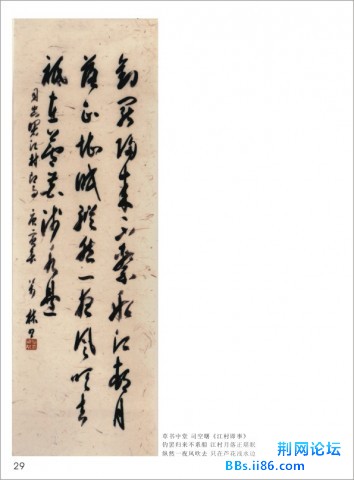 釣罷歸來不繫船江村月
落正堪眠縱然一夜風吹去
祇在蘆花淺水邊
司空曙江村即事 庚寅
草书中堂 司空曙《江村即事》
钓罢归来不系船 江村月落正堪眠
纵然一夜风吹去 只在芦花浅水边
29
荆网论坛
BBs.ii86.com